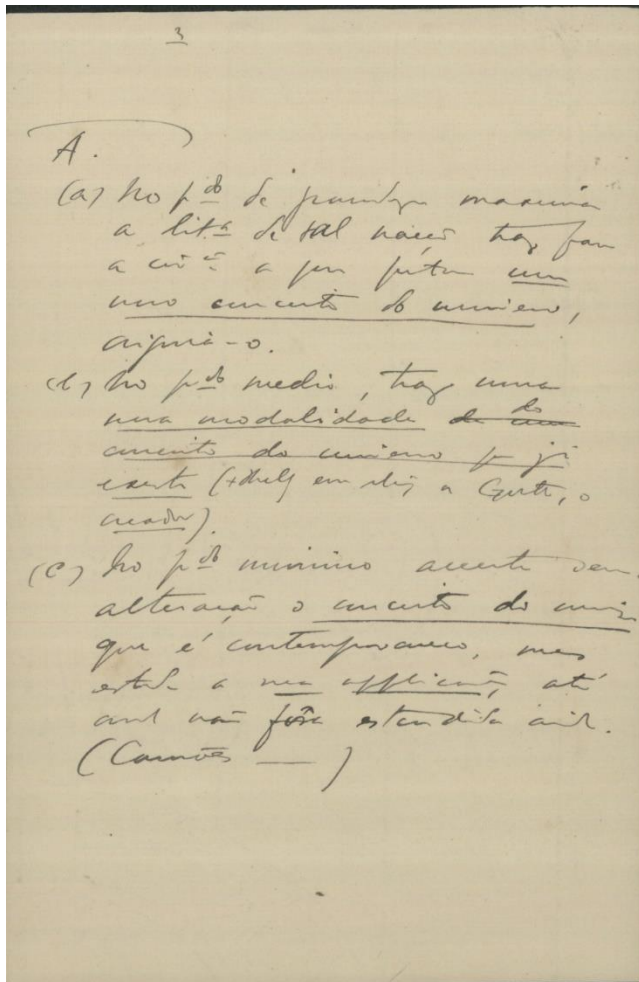 3
A.
(a) No p.do de grandeza maxima
a litt.a de tal nação traz para
a civ.ão a que pertence um
novo conceito do universo,
(b) No p.do medio, traz uma
nova modalidade do
conceito do universo que já
existe (+ Shelley em relação a Goethe, o
creador).
(c) No p.do minimo acceita sem
alteração o conceito do universo
que é contemporaneo, mas
estende a sua applicação até
onde não fôra estendida ainda.
(Camões — )